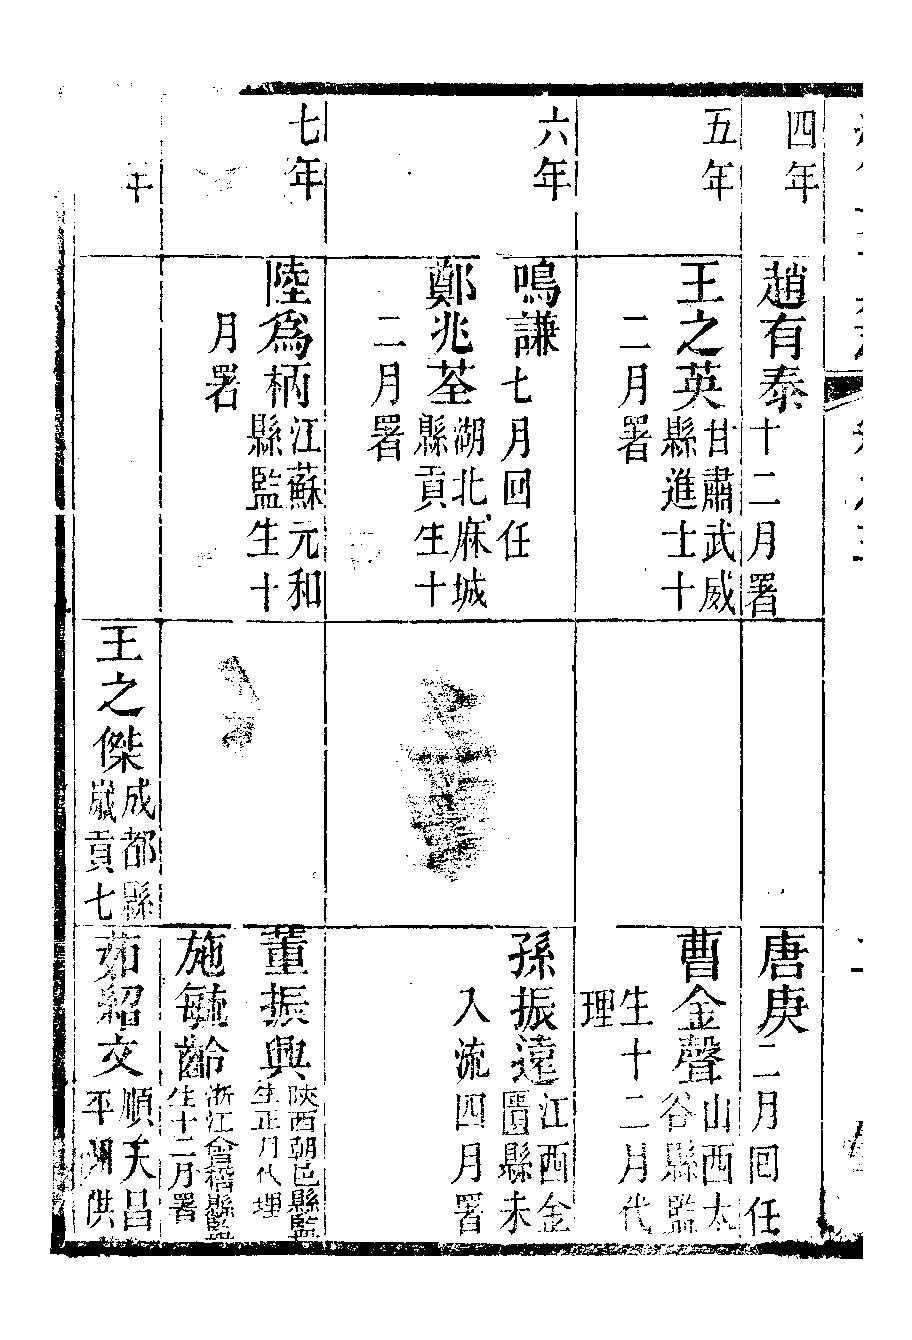 四年
趙有泰十二月署
唐庚二月回任
五年
王之英甘肅武威
縣進士十
二月署
曹金聲山西太
谷縣監
生十二月代
理
六年
鳴謙七月回任
鄭兆荃湖北麻城
縣貢生十
二月署
孫振遠江西金
縣未
入流四月署
七年
陸為柄江蘇元和
縣監生十
月署
董振興陝西朝邑縣監
生正月代理
施毓齡浙江會稽縣監
生十二月署
年
王之傑成都縣
歲貢七
茹紹文順天昌
平州供